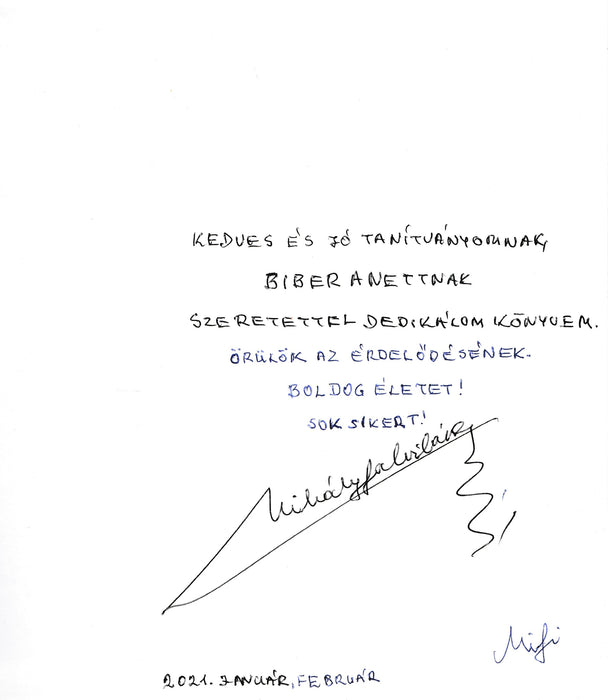 KEDVES ÉS JÓ TANÍTVÁNYOMNAK,
BIBER ANETTNAK
SZERETETTEL DEDIKÁLOM KÖNYVEM.
ÖRÜLÖK AZ ÉRDELŐDÉSÉNEK.
BOLDOG ÉLETET!
SOK SIKERT!
Mifi
2021. JANUÁR, FEBRUÁR